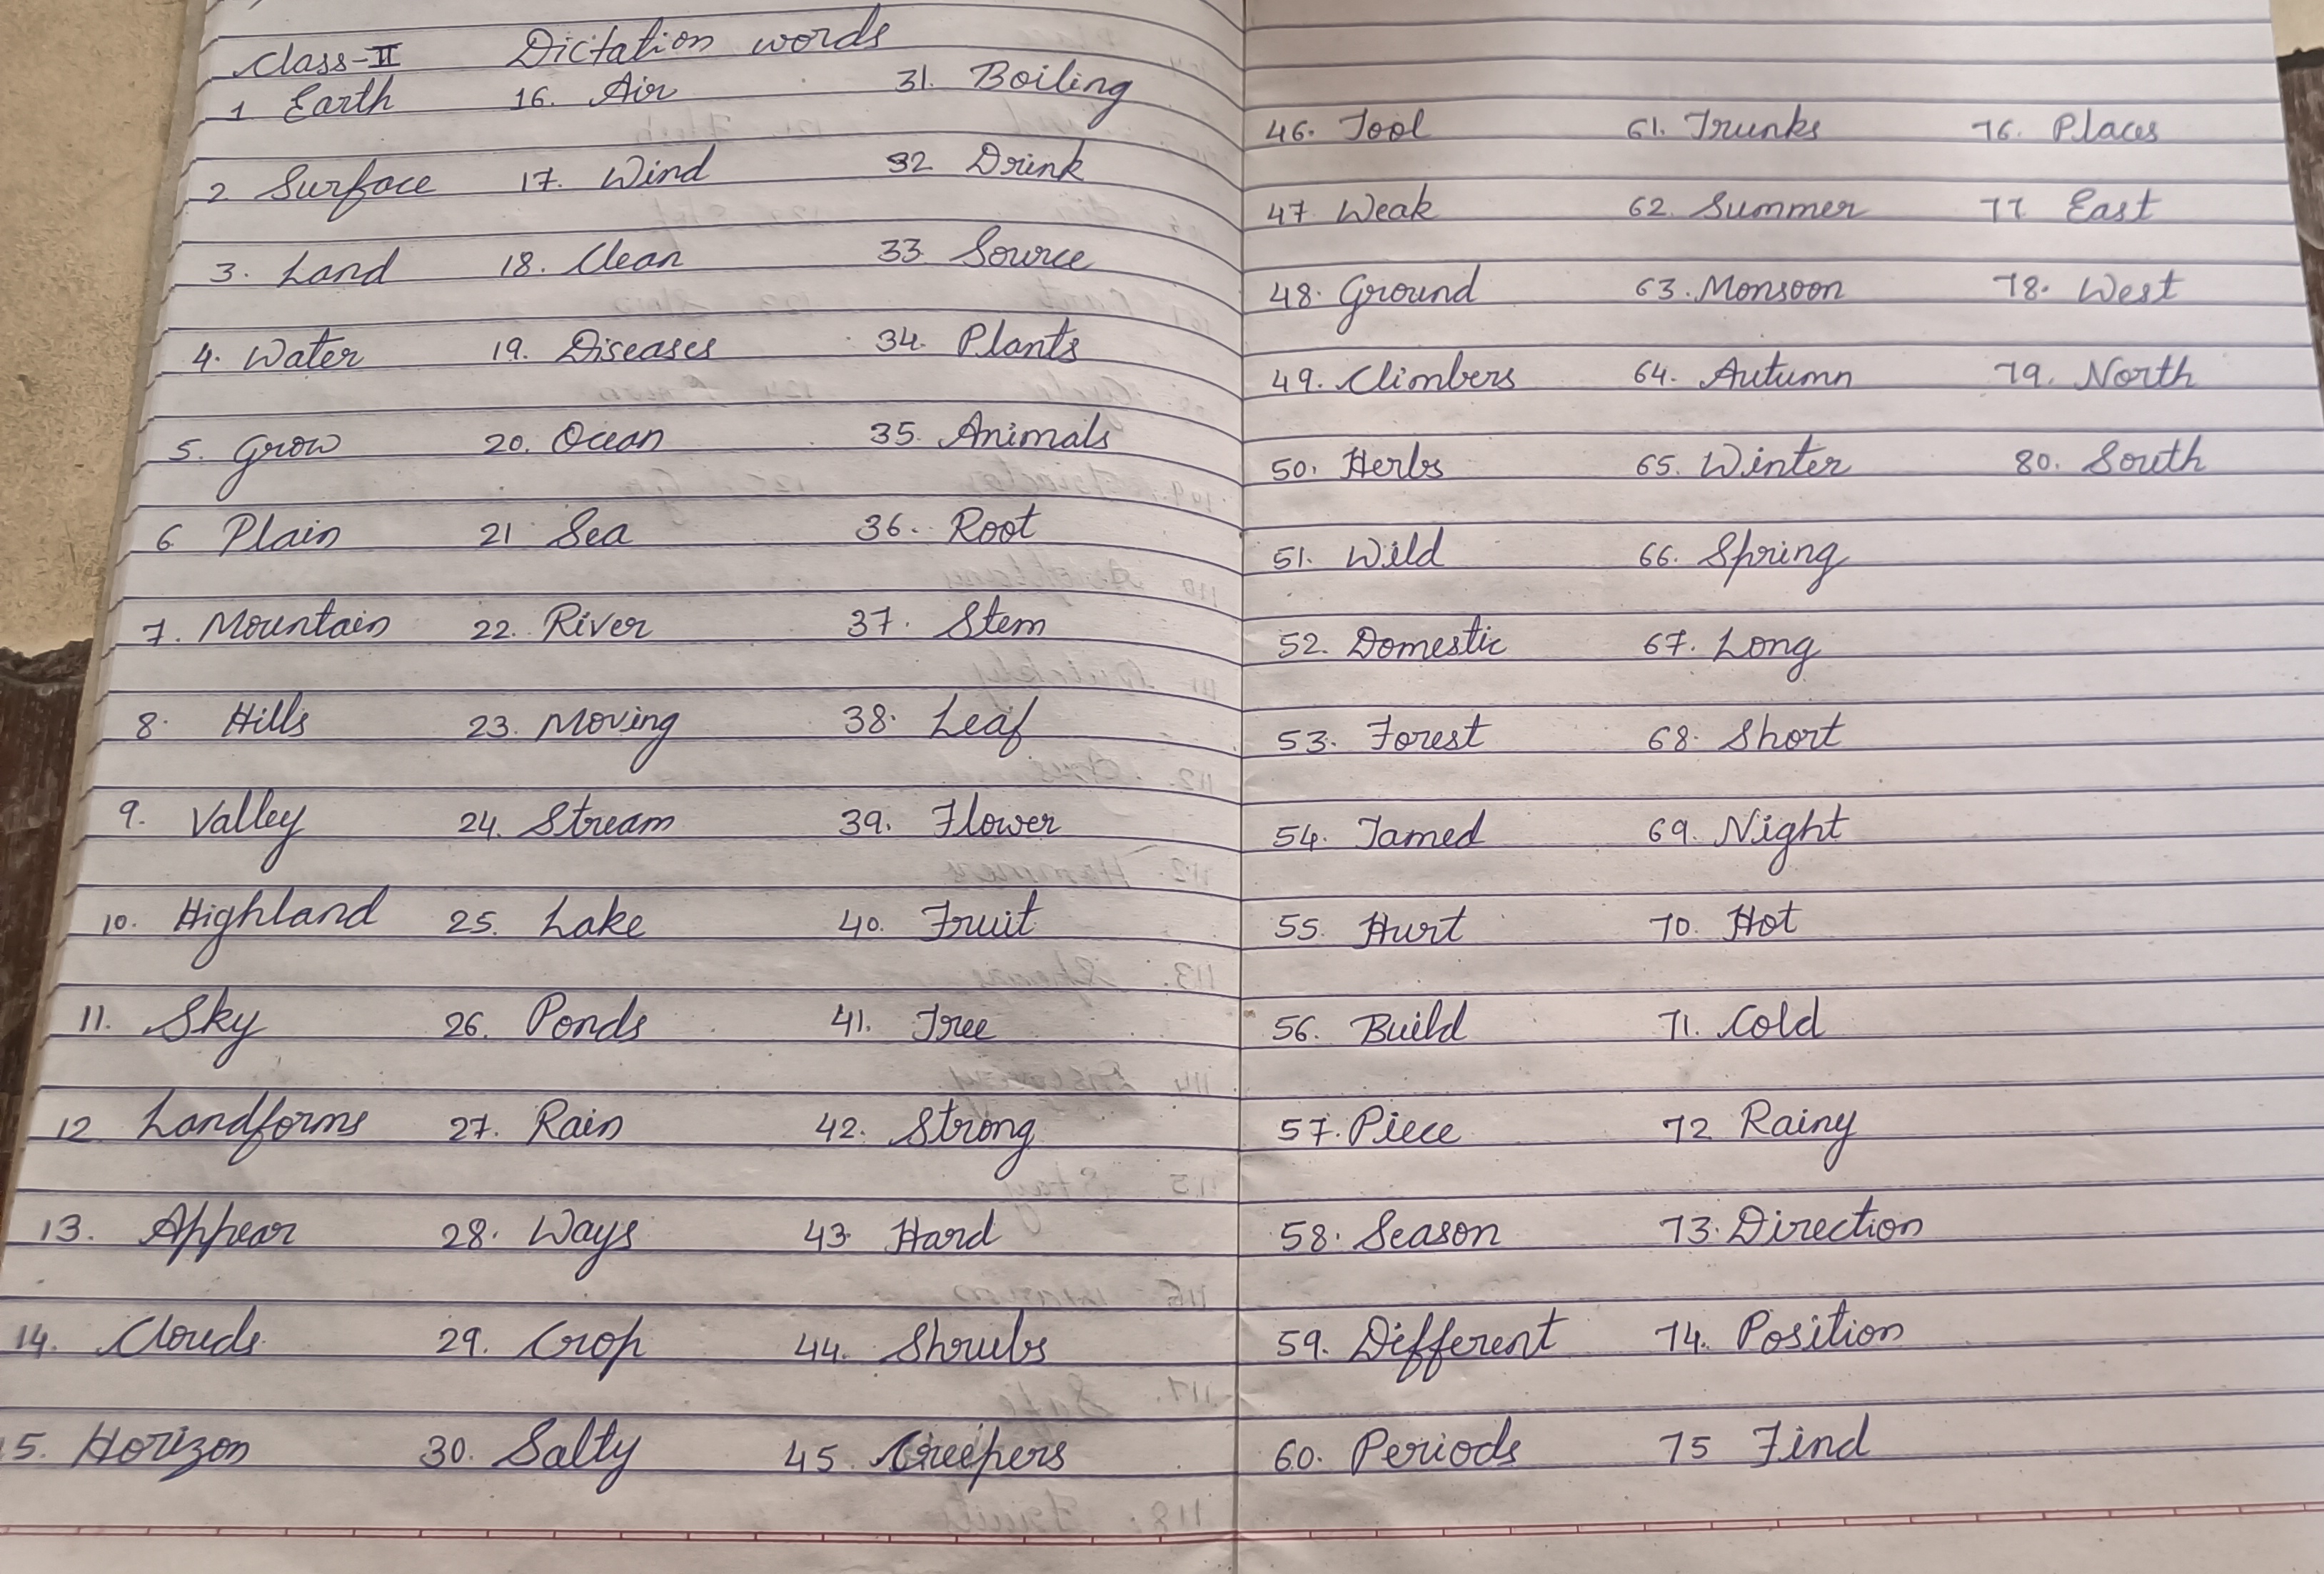 Class-II Dictation words
1 Earth 16. Air 31. Boiling
2 Surface 17. Wind 32 Drink
3. Land 18. Clean 33 Source
4. Water 19. Diseases 34. Plants
5. Grow 20. Ocean 35. Animals
6 Plain 21 Sea 36. Root
7. Mountain 22. River 37. Stem
8. Hills 23. Moving 38. Leaf
9. Valley 24. Stream 39. Flower
10. Highland 25. Lake 40. Fruit
11. Sky 26. Ponds 41. Tree
12 Landforms 27. Rain 42. Strong
13. Appear 28. Ways 43. Hard
14. Clouds 29. Crop 44. Shrubs
15. Horizon 30. Salty 45. Creepers
46. Tool 61. Trunks 76. Places
47 Weak 62. Summer 77. East
48. Ground 63. Monsoon 78. West
49. Climbers 64. Autumn 79. North
50. Herbs 65. Winter 80. South
51. Wild 66. Spring
52. Domestic 67. Long
53. Forest 68. Short
54. Tamed 69. Night
55. Hurt 70. Hot
56. Build 71. Cold
57. Piece 72 Rainy
58. Season 73. Direction
59. Different 74. Position
60. Periods 75 Find